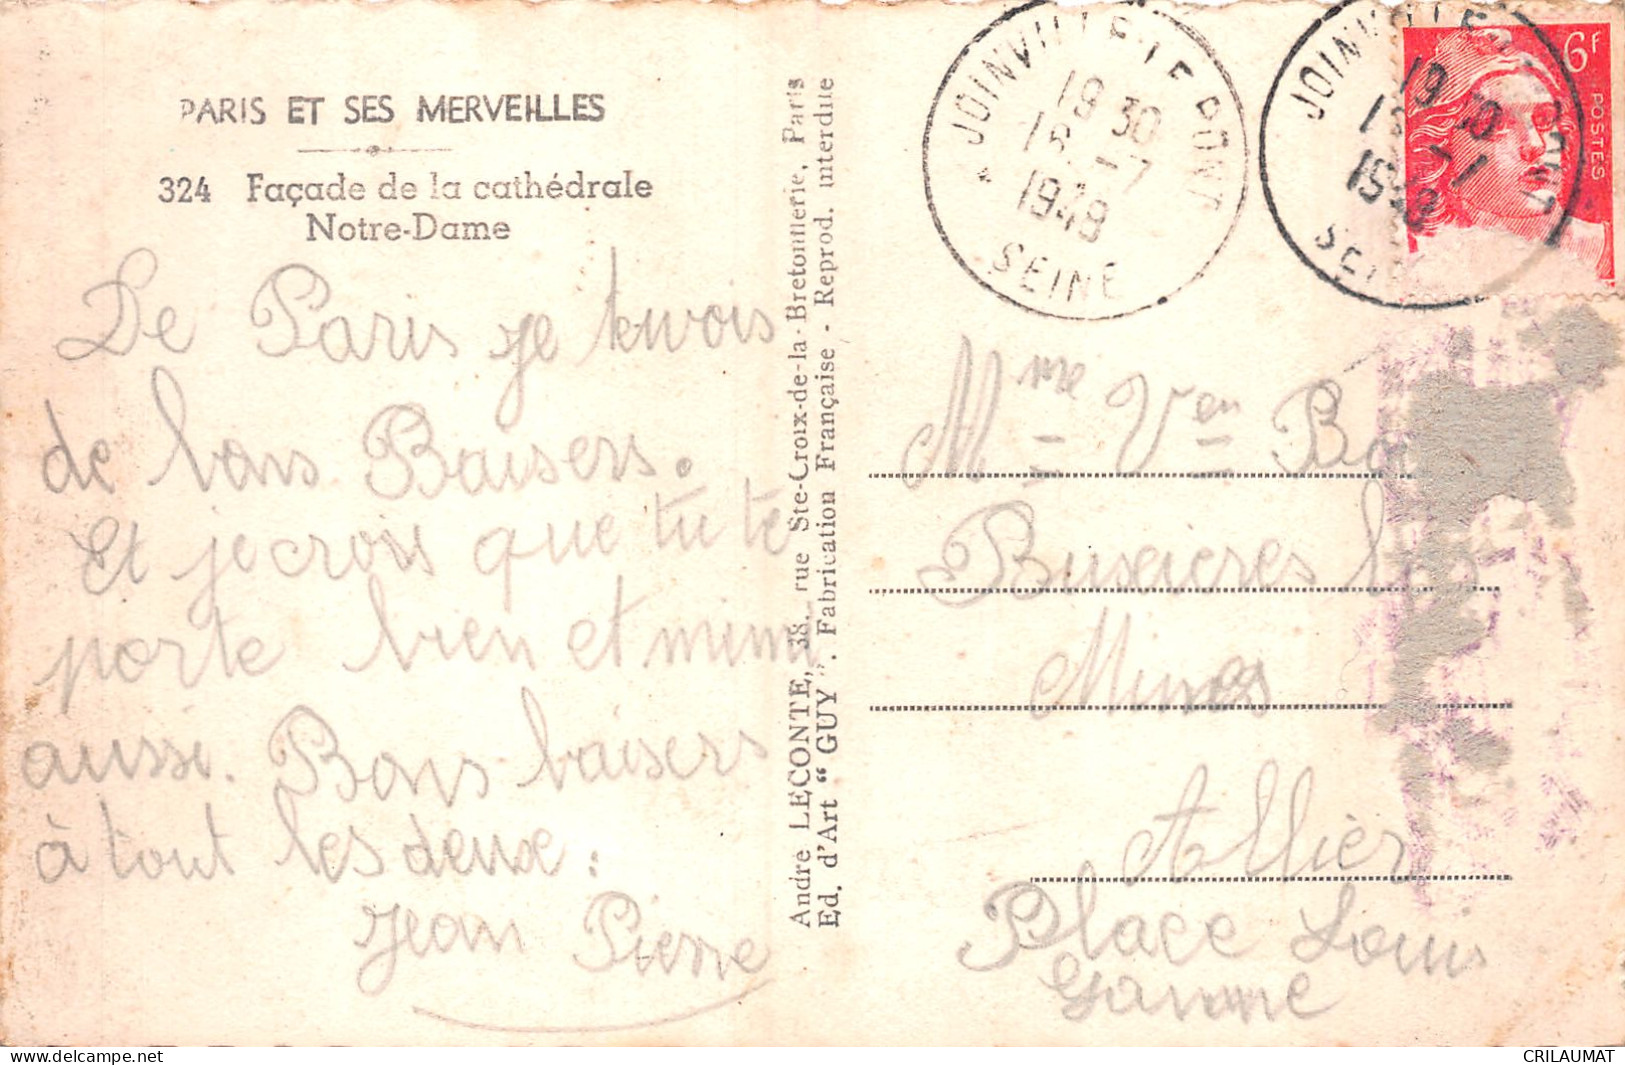 PARIS ET SES MERVEILLES
324 Façade de la cathédrale
Notre-Dame
De Paris je tenvois
de bons Baisers.
Et je crois que tu te
porte bien et mimi
aussi. Bons baisers
à tout les deux :
Jean Pierre
André LECONTE, 38, rue Ste-Croix-de-la-Bretonnerie, Paris
Ed. d'Art "GUY". Fabrication Française - Reprod. interdite
JOINVILLE-LE-PONT
19 30
18 -7
1948
SEINE
JOINVILLE PONT
19 30
18 -7
1948
SEINE
6F
POSTES
Mme Ven
Buxieres les
Mines
Allier
Place Louis
Ganne
CRILAUMAT